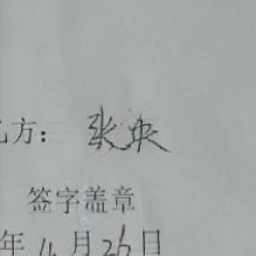 乙方：张央
签字盖章
年4月26日